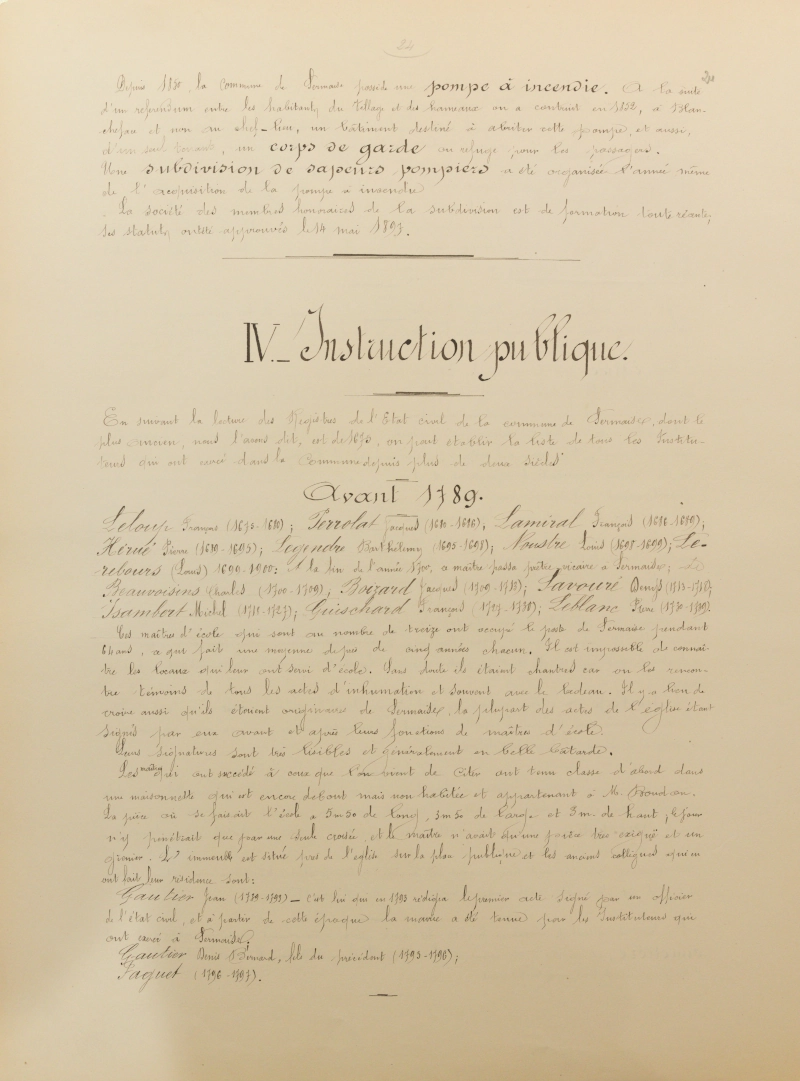 24
Depuis 1850, la Commune de Sermaise possède une pompe à incendie. A la suite
d'un referendum entre les habitants du Village et des hameaux on a construit en 1882, à Blan-
chefort et non au chef-lieu, un bâtiment destiné à abriter cette pompe, et aussi,
d'un seul tenant, un corps de garde ou refuge pour les passagers.
Une subdivision de sapeurs pompiers a été organisée l'année même
de l'acquisition de la pompe à incendie
La société des membres honoraires de la subdivision est de formation toute récente;
ses statuts ont été approuvés le 14 mai 1897.
IV._ Instruction publique.
En suivant la lecture des Registres de l'Etat civil de la commune de Sermaise, dont le
plus ancien, nous l'avons dit, est de 1675, on peut établir la liste de tous les Institu-
teurs qui ont exercé dans la Commune depuis plus de deux siècles
Avant 1789.
Leloup François (1675-1680); Perrolat Jacques (1680-1686); Lamiral François (1686-1689);
Hérué Pierre (1689-1695); Legendre Barthélemy (1695-1698); Noustre Louis (1698-1699); Le-
ribours (Louis) 1699-1700: A la fin de l'année 1700, a maître passa prêtre vicaire à Sermaise; Le
Beauvoisins Charles (1700-1709); Boizard Jacques (1709-1713); Savouré Denis (1713-1718);
Isambert Michel (1718-1727); Guischard François (1727-1730); Leblanc Pierre (1730-1739).
Ces maîtres d'école qui sont au nombre de treize ont occupé le poste de Sermaise pendant
64 ans, ce qui fait une moyenne de près de cinq années chacun. Il est impossible de connaî-
tre les locaux qui leur ont servi d'école. Sans doute ils étaient chantres car on les rencon-
tre témoins de tous les actes d'inhumation et souvent avec le bedeau. Il y a lieu de
croire aussi qu'ils étaient originaires de Sermaise, la plupart des actes de l'église étant
signés par eux avant et après leurs fonctions de maîtres d'école.
Leurs signatures sont très lisibles et généralement en belle bâtarde.
Les maîtres qui ont succédé à ceux que l'on vient de citer ont tenu classe d'abord dans
une maisonnette qui est encore debout mais non habitée et appartenant à M. Baudon.
La pièce où se faisait l'école a 5m50 de long, 3m50 de large et 3 m. de haut; le jour
n'y pénétrait que par une seule croisée, et le maître n'avait qu'une pièce très exiguë et un
grenier. L'immeuble est situé près de l'église sur la place publique et les anciens collègues qui en
ont fait leur résidence sont:
Gautier Jean (1739-1793) _ c'est lui qui en 1793 rédigea le premier acte signé par un officier
de l'état civil, et à partir de cette époque la mairie a été tenue par les Instituteurs qui
ont exercé à Sermaise.
Gautier Denis Bernard, fils du précédent (1793-1796);
Faquet (1796-1797).